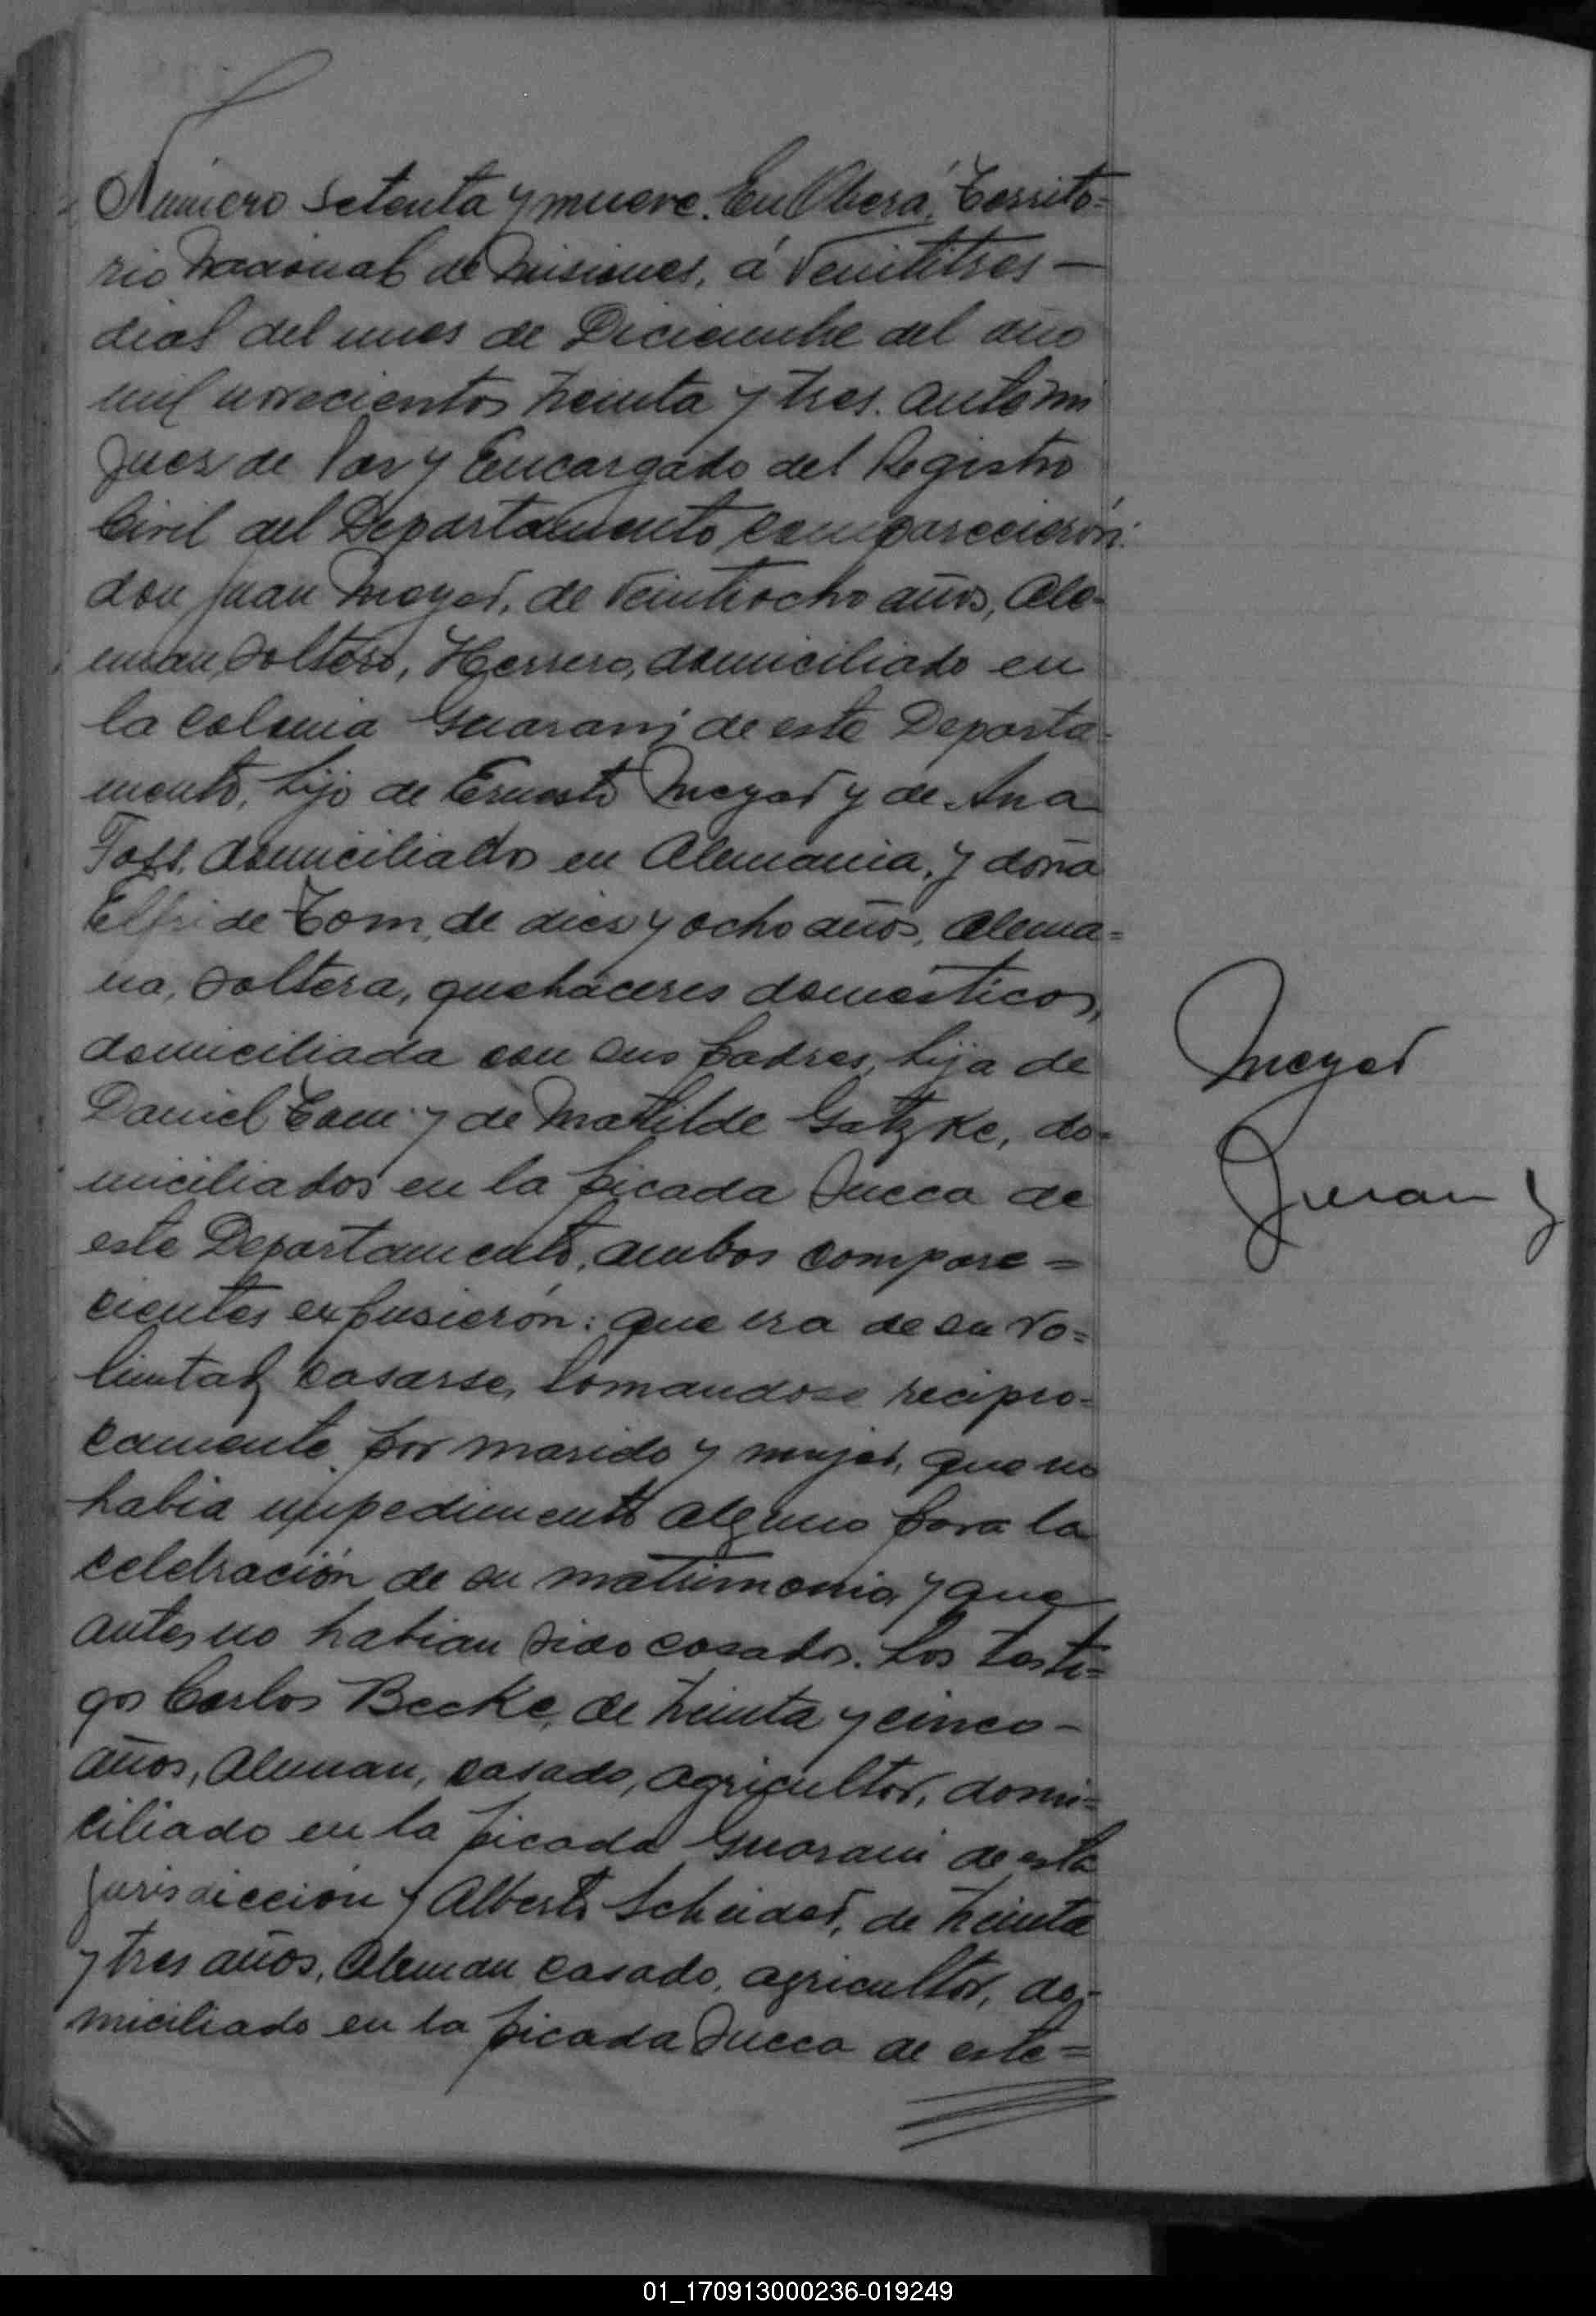 Número setenta y nueve. En Oberá, Territo=
rio Nacional de Misiones, á Veintitres —
dias del mes de Diciembre del año
mil novecientos treinta y tres. ante mi
Juez de Paz y Encargado del Registro
Civil del Departamento comparecierón:
don Juan Meyer, de Veintiocho años, Ale-
man, soltero, Herrero, domiciliado en
la colonia Guarani de este Departa=
mento, hijo de Ernesto Meyer y de Ana
domiciliado en Alemania, y doña
Elfride Tom, de diez y ocho años, alema=
na, soltera, quehaceres domesticos,
domiciliada con sus padres, hija de
Daniel Tom y de Matilde Gatzke, do=
miciliados en la picada Sueca de
este Departamento, ambos compare=
cientes expusierón: que era de su vo=
luntad casarse, tomandose recipro=
camente por marido y mujer, que no
habia impedimento alguno para la
celebración de su matrimonio y que
antes no habian sido casados. Los testi=
gos Carlos Becke, de treinta y cinco —
años, Aleman, casado, agricultor, domi=
ciliado en la picada Guarani de esta
jurisdicción y Alberto Scheider, de treinta
y tres años, Aleman, casado, agricultor, do=
miciliado en la picada Sueca de este=
Meyer
Juan y
01_170913000236-019249